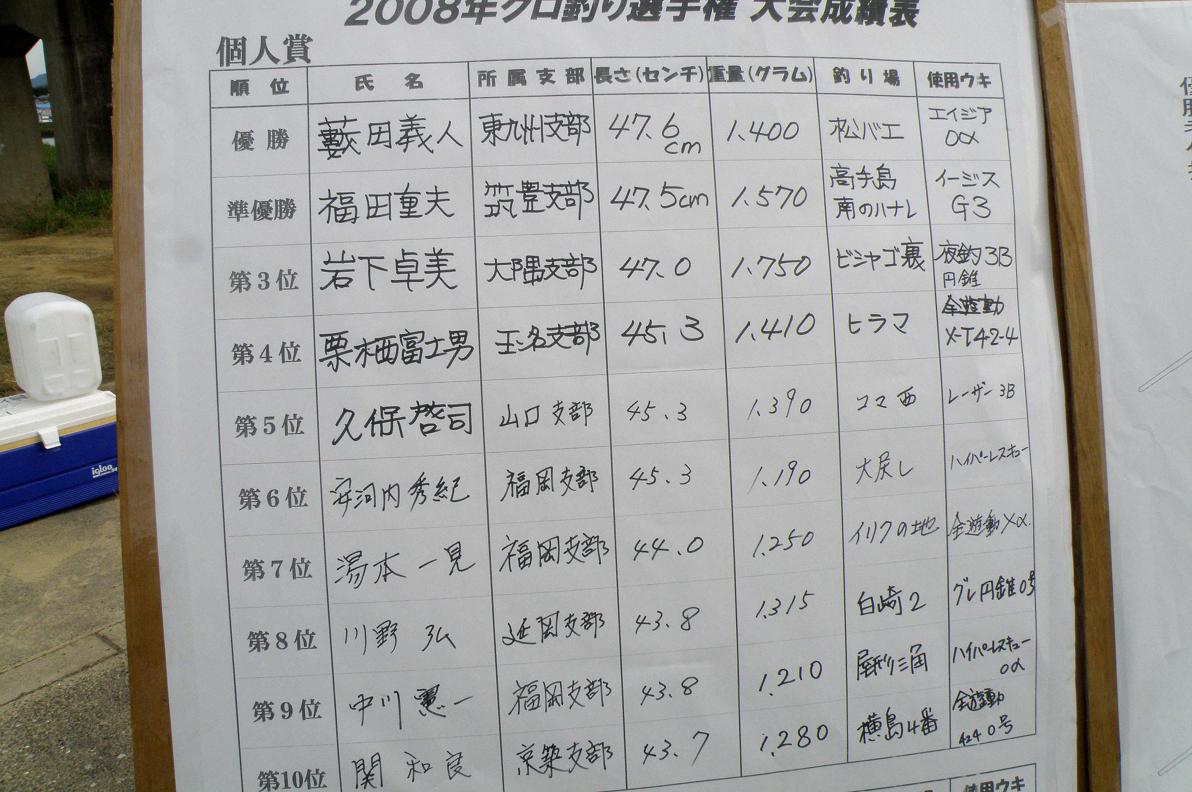 2008年クロ釣り選手権 大会成績表
個人賞
順位 氏名 所属支部 長さ(センチ) 重量(グラム) 釣り場 使用ウキ
優勝 藪田義人 東九州支部 47.6cm 1.400 松バエ エイジア0α
準優勝 福田重夫 筑豊支部 47.5cm 1.570 高手島南のハナレ イージスG3
第3位 岩下卓美 大隅支部 47.0 1.750 ビシャゴ裏 夜釣3B円錐
第4位 栗栖富士男 玉名支部 45.3 1.410 ヒラマ 全遊動
第5位 久保啓司 山口支部 45.3 1.390 コマ西 レーザー3B
第6位 安河内秀紀 福岡支部 45.3 1.190 大戻し ハイパーレスキュー
第7位 湯本一見 福岡支部 44.0 1.250 イリフの地 全遊動Xα.
第8位 川野弘 延岡支部 43.8 1.315 白崎2 グレ円錐0号
第9位 中川憲一 福岡支部 43.8 1.210 屋形三角 ハイパーレスキュー0α
第10位 関和良 京築支部 43.7 1.280 横島4番 全遊動 0号
使用ウキ
igloo